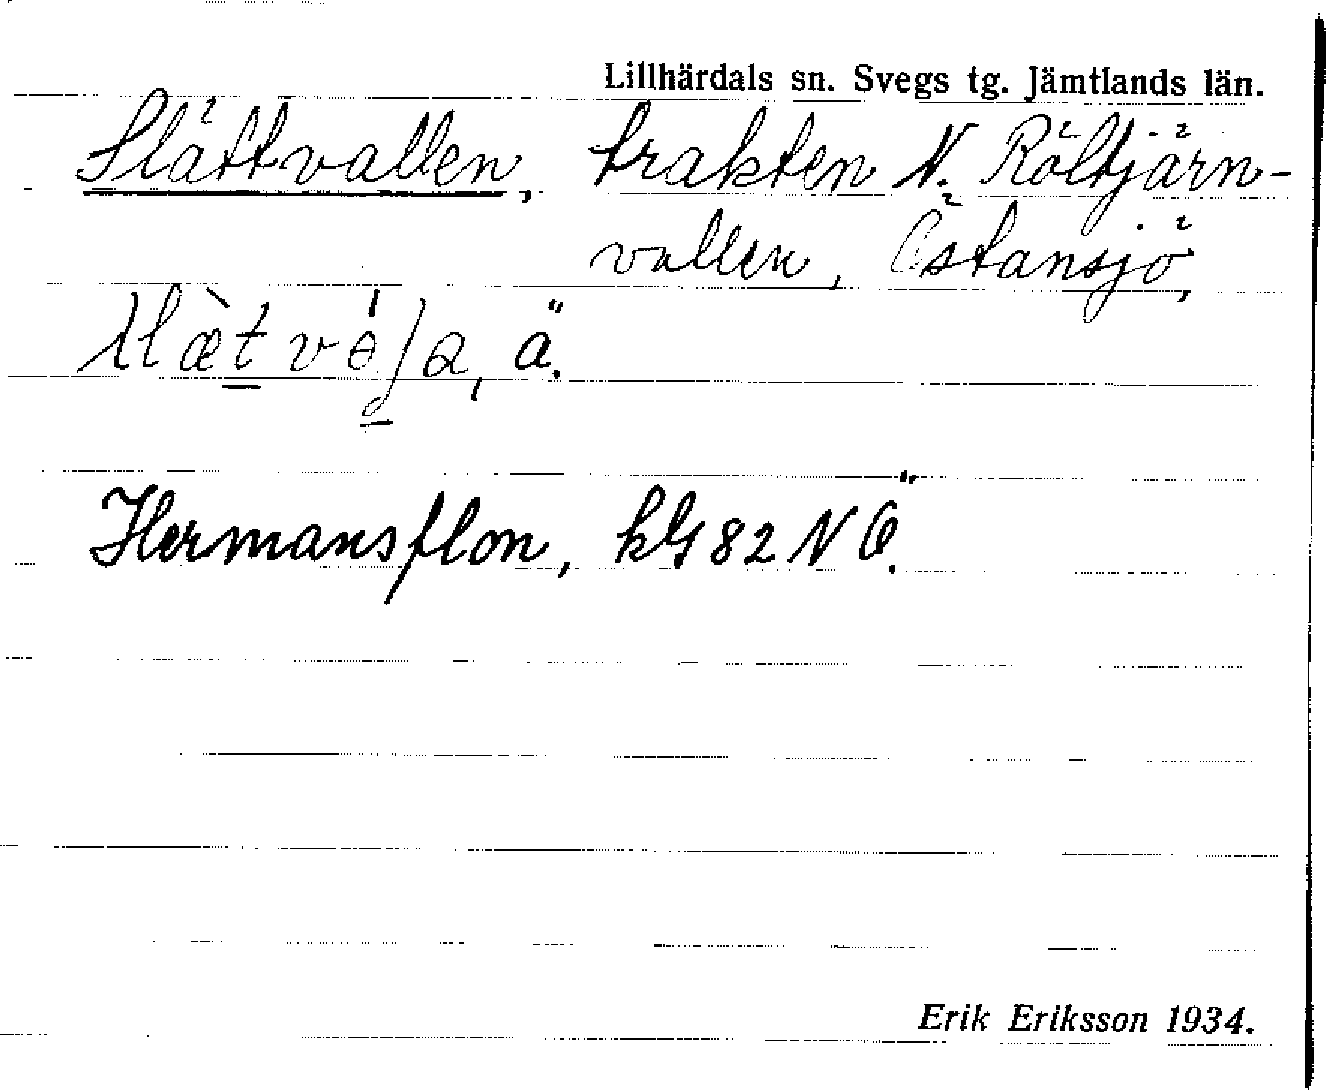 Lillhärdals sn. Svegs tg. Jämtlands län.
Slättvallen, trakten N. Röltjärn-
vallen, Östansjö,
ä.
Hermansflon, kG 82 NÖ.
Erik Eriksson 1934.